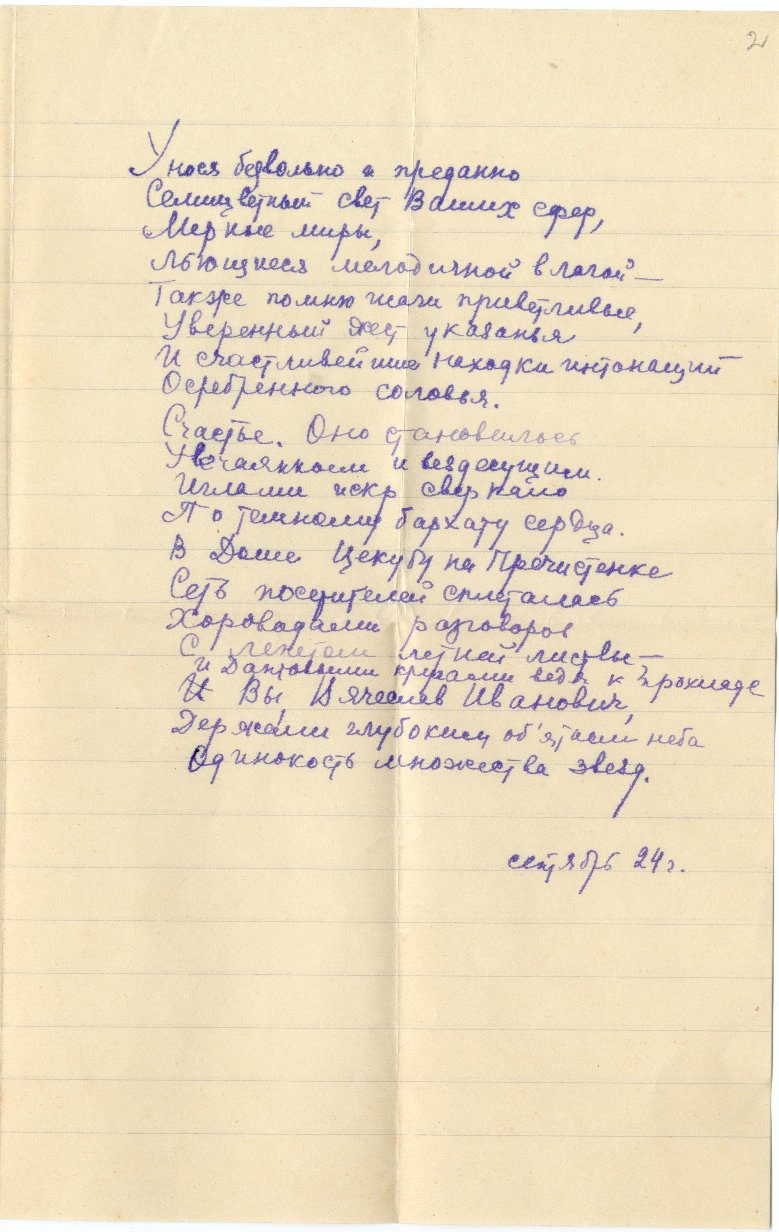 2
Унося безвольно и преданно
Семицветный свет Ваших сфер,
Мерные миры,
Льющиеся мелодичной влагой —
Также помню чачи приветливые,
Уверенный жест указанья
И счастливейшие находки интонаций
Осребренного соловья.
Счастье. Оно становилось
Увенчанным и вездесущим.
Иглами искр сверкало
По темному бархату сердца.
В Доме Цекубу на Пречистенке
Сеть посетителей сплеталась
Хороводами разговоров
С лепетом летней листвы —
и Дантовыми кругами ведя к прохладе
И Вы, Вячеслав Иванович,
Держали глубоким об'ятьем неба
Одинокость множества звезд.
сентябрь 24 г.